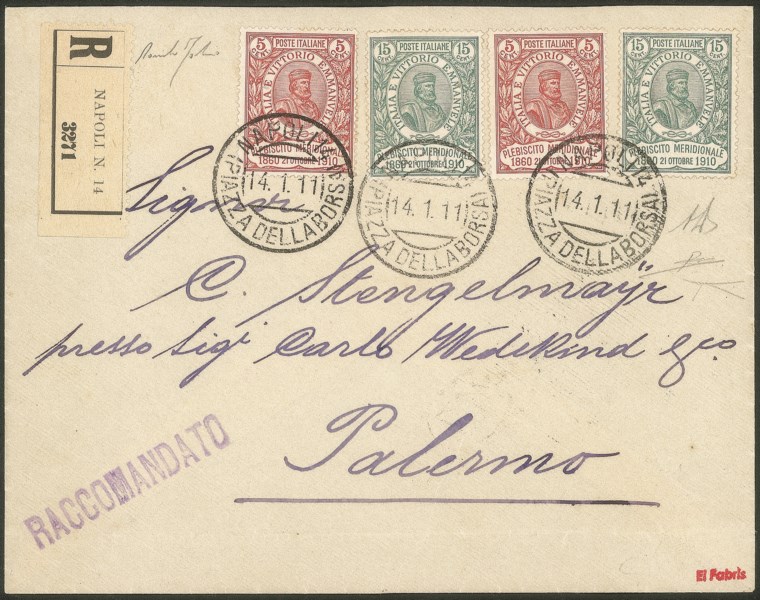 R
NAPOLI N. 14
3271
5 CENT POSTE ITALIANE 5 CENT
ITALIA E VITTORIO EMMANVELE
PLEBISCITO MERIDIONALE
1860 21 OTTOBRE 1910
15 CENT POSTE ITALIANE 15 CENT
ITALIA E VITTORIO EMMANVELE
PLEBISCITO MERIDIONALE
1860 21 OTTOBRE 1910
5 CENT POSTE ITALIANE 5 CENT
ITALIA E VITTORIO EMMANVELE
PLEBISCITO MERIDIONALE
1860 21 OTTOBRE 1910
15 CENT POSTE ITALIANE 15 CENT
ITALIA E VITTORIO EMMANVELE
PLEBISCITO MERIDIONALE
1860 21 OTTOBRE 1910
NAPOLI 14
14.1.11
(PIAZZA DELLA BORSA)
14.1.11
(PIAZZA DELLA BORSA)
NAPOLI 14
14.1.11
(PIAZZA DELLA BORSA)
Signor
C. Stengelmaÿr
presso Sigi Carlo Wedekind & Co
Palermo
RACCOMANDATO
El Fabris